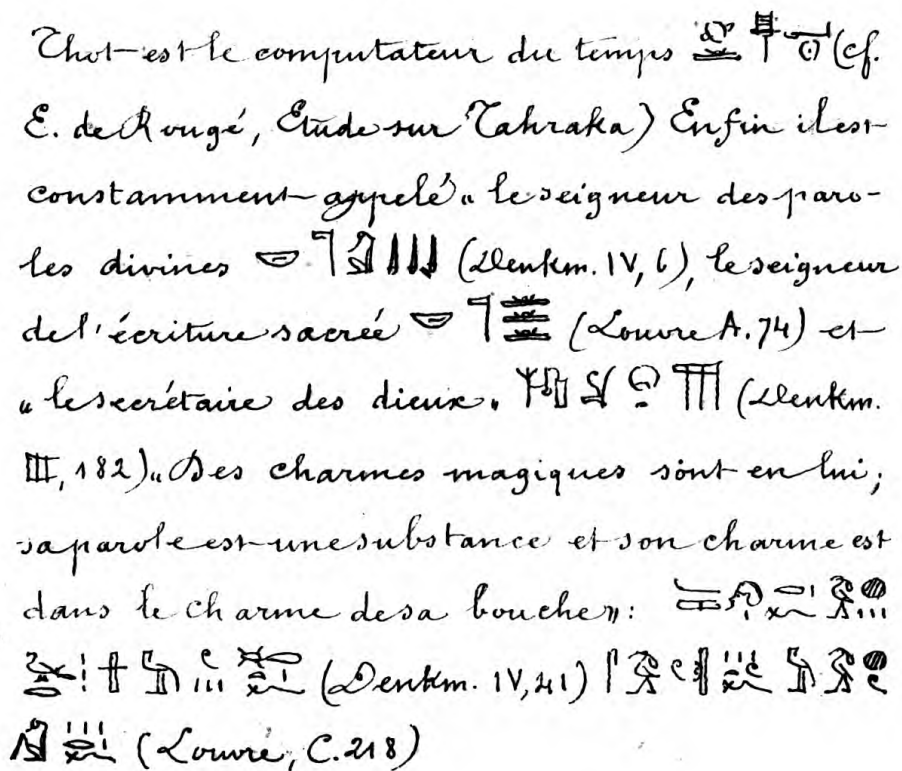 Thot est le computateur du temps (cf.
E. de Rougé, Etude sur Tahraka) Enfin il est
constamment appelé « le seigneur des paro-
les divines (Denkm. IV, 6), le seigneur
de l'écriture sacrée (Louvre A. 74) et
« le secrétaire des dieux » (Denkm.
III, 182) « Des charmes magiques sont en lui;
sa parole est une substance et son charme est
dans le charme de sa bouche »:
(Denkm. IV, 41)
(Louvre, C. 218)